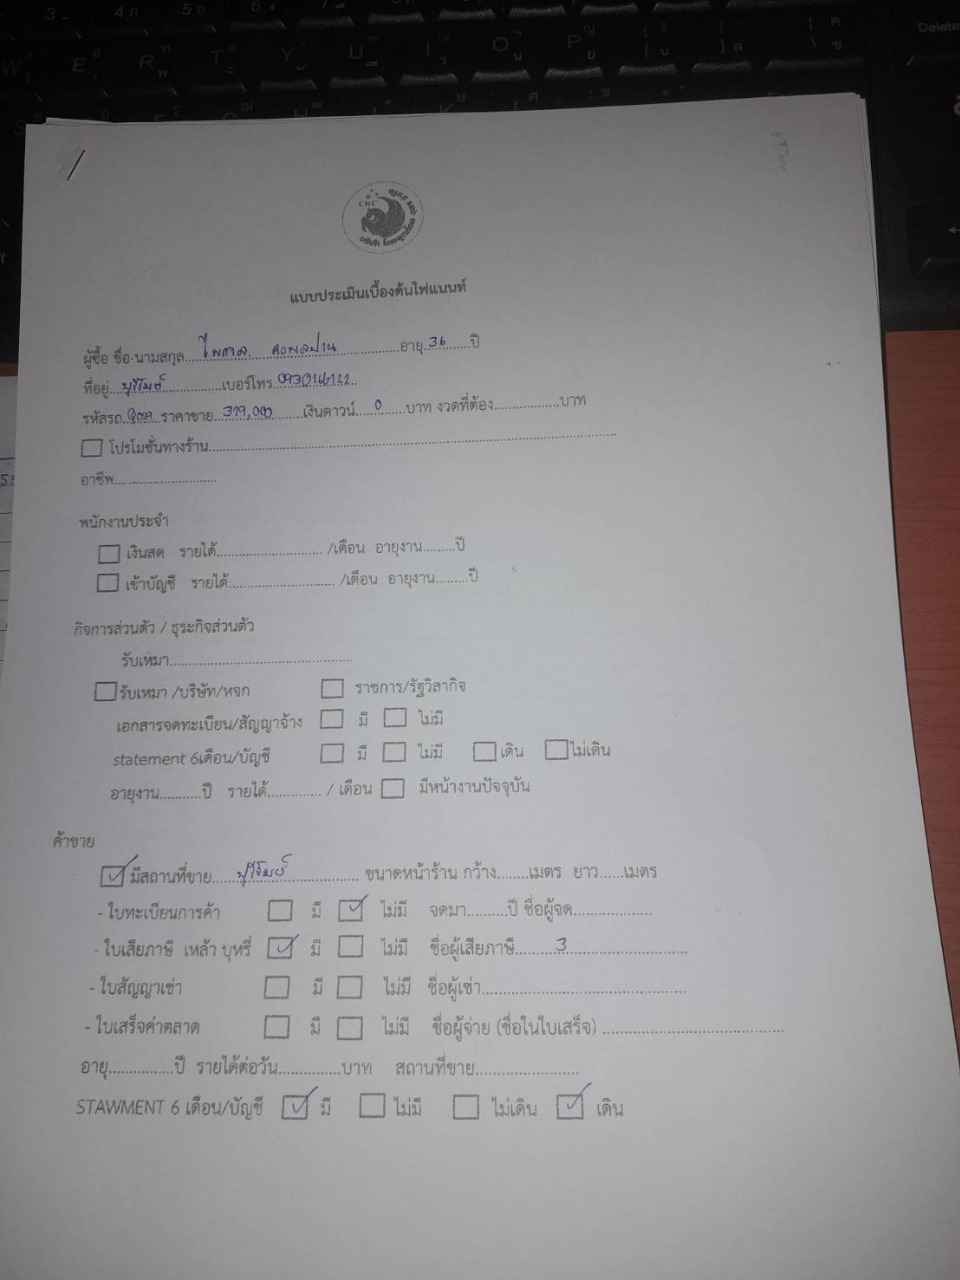 แบบประเมินเบื้องต้นไฟแนนท์
ผู้ซื้อ ชื่อ-นามสกุล.....ไพศาล.....................อายุ.36......ปี
ที่อยู่...บุรีรัมย์..............เบอร์โทร
รหัสรถ....... ราคาขาย..379,000.......เงินดาวน์...0......บาท งวดที่ต้อง................บาท
☐ โปรโมชั่นทางร้าน....................................................................
อาชีพ..........................
พนักงานประจำ
☐ เงินสด รายได้.......................... /เดือน อายุงาน........ปี
☐ เข้าบัญชี รายได้.......................... /เดือน อายุงาน........ปี
กิจการส่วนตัว / ธุระกิจส่วนตัว
รับเหมา.............................................
☐ รับเหมา /บริษัท/หจก ☐ ราชการ/รัฐวิสากิจ
เอกสารจดทะเบียน/สัญญาจ้าง ☐ มี ☐ ไม่มี
statement 6เดือน/บัญชี ☐ มี ☐ ไม่มี ☐ เดิน ☐ ไม่เดิน
อายุงาน..........ปี รายได้............. / เดือน ☐ มีหน้างานปัจจุบัน
ค้าขาย
☑ มีสถานที่ขาย.....บุรีรัมย์.................. ขนาดหน้าร้าน กว้าง.......เมตร ยาว......เมตร
- ใบทะเบียนการค้า ☐ มี ☑ ไม่มี จดมา.........ปี ชื่อผู้จด..................
- ใบเสียภาษี เหล้า บุหรี่ ☑ มี ☐ ไม่มี ชื่อผู้เสียภาษี........3...........................
- ใบสัญญาเช่า ☐ มี ☐ ไม่มี ชื่อผู้เช่า.............................................
- ใบเสร็จค่าตลาด ☐ มี ☐ ไม่มี ชื่อผู้จ่าย (ชื่อในใบเสร็จ) ........................................
อายุ...............ปี รายได้ต่อวัน..............บาท สถานที่ขาย.......................
STAWMENT 6 เดือน/บัญชี ☑ มี ☐ ไม่มี ☐ ไม่เดิน ☑ เดิน